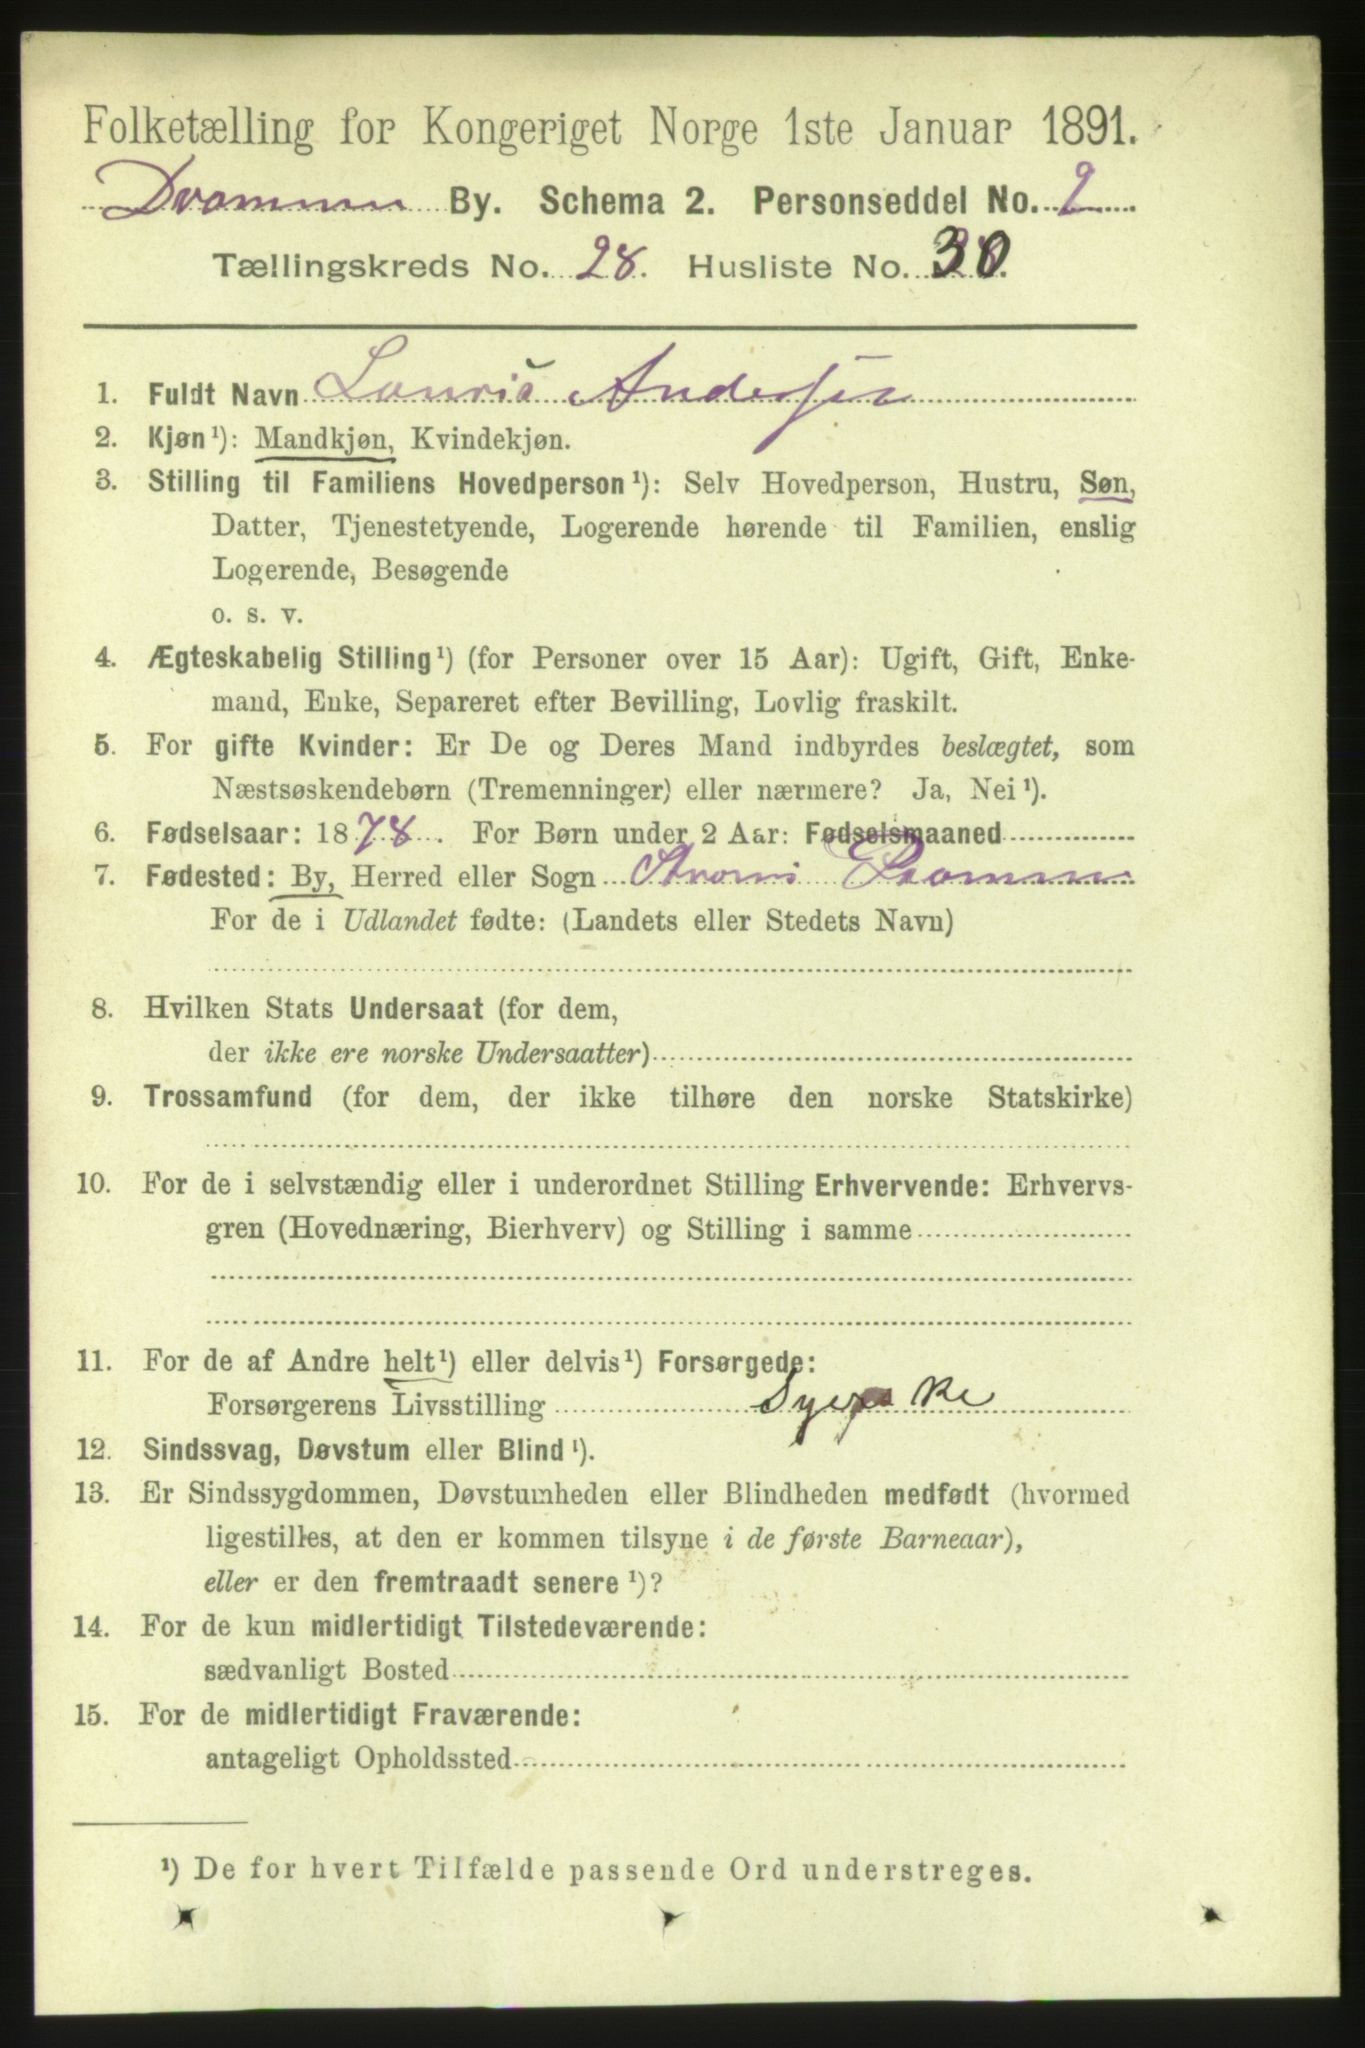 Folketælling for Kongeriget Norge 1ste Januar 1891.
Drammen By. Schema 2. Personseddel No. 2
Tællingskreds No. 28. Husliste No. 30.
1. Fuldt Navn Lauris Andersen
2. Kjøn¹): Mandkjøn, Kvindekjøn.
3. Stilling til Familiens Hovedperson¹): Selv Hovedperson, Hustru, Søn,
Datter, Tjenestetyende, Logerende hørende til Familien, enslig
Logerende, Besøgende
o. s. v.
4. Ægteskabelig Stilling¹) (for Personer over 15 Aar): Ugift, Gift, Enke-
mand, Enke, Separeret efter Bevilling, Lovlig fraskilt.
5. For gifte Kvinder: Er De og Deres Mand indbyrdes beslægtet, som
Næstsøskendebørn (Tremenninger) eller nærmere? Ja, Nei¹).
6. Fødselsaar: 1878. For Børn under 2 Aar: Fødselsmaaned
7. Fødested: By, Herred eller Sogn Strøms Drammen
For de i Udlandet fødte: (Landets eller Stedets Navn)
8. Hvilken Stats Undersaat (for dem,
der ikke ere norske Undersaatter)
9. Trossamfund (for dem, der ikke tilhøre den norske Statskirke)
10. For de i selvstændig eller i underordnet Stilling Erhvervende: Erhvervs-
gren (Hovednæring, Bierhverv) og Stilling i samme
11. For de af Andre helt¹) eller delvis¹) Forsørgede:
Forsørgerens Livsstilling
12. Sindssvag, Døvstum eller Blind¹).
13. Er Sindssygdommen, Døvstumheden eller Blindheden medfødt (hvormed
ligestilles, at den er kommen tilsyne i de første Barneaar),
eller er den fremtraadt senere¹)?
14. For de kun midlertidigt Tilstedeværende:
sædvanligt Bosted
15. For de midlertidigt Fraværende:
antageligt Opholdssted
¹) De for hvert Tilfælde passende Ord understreges.